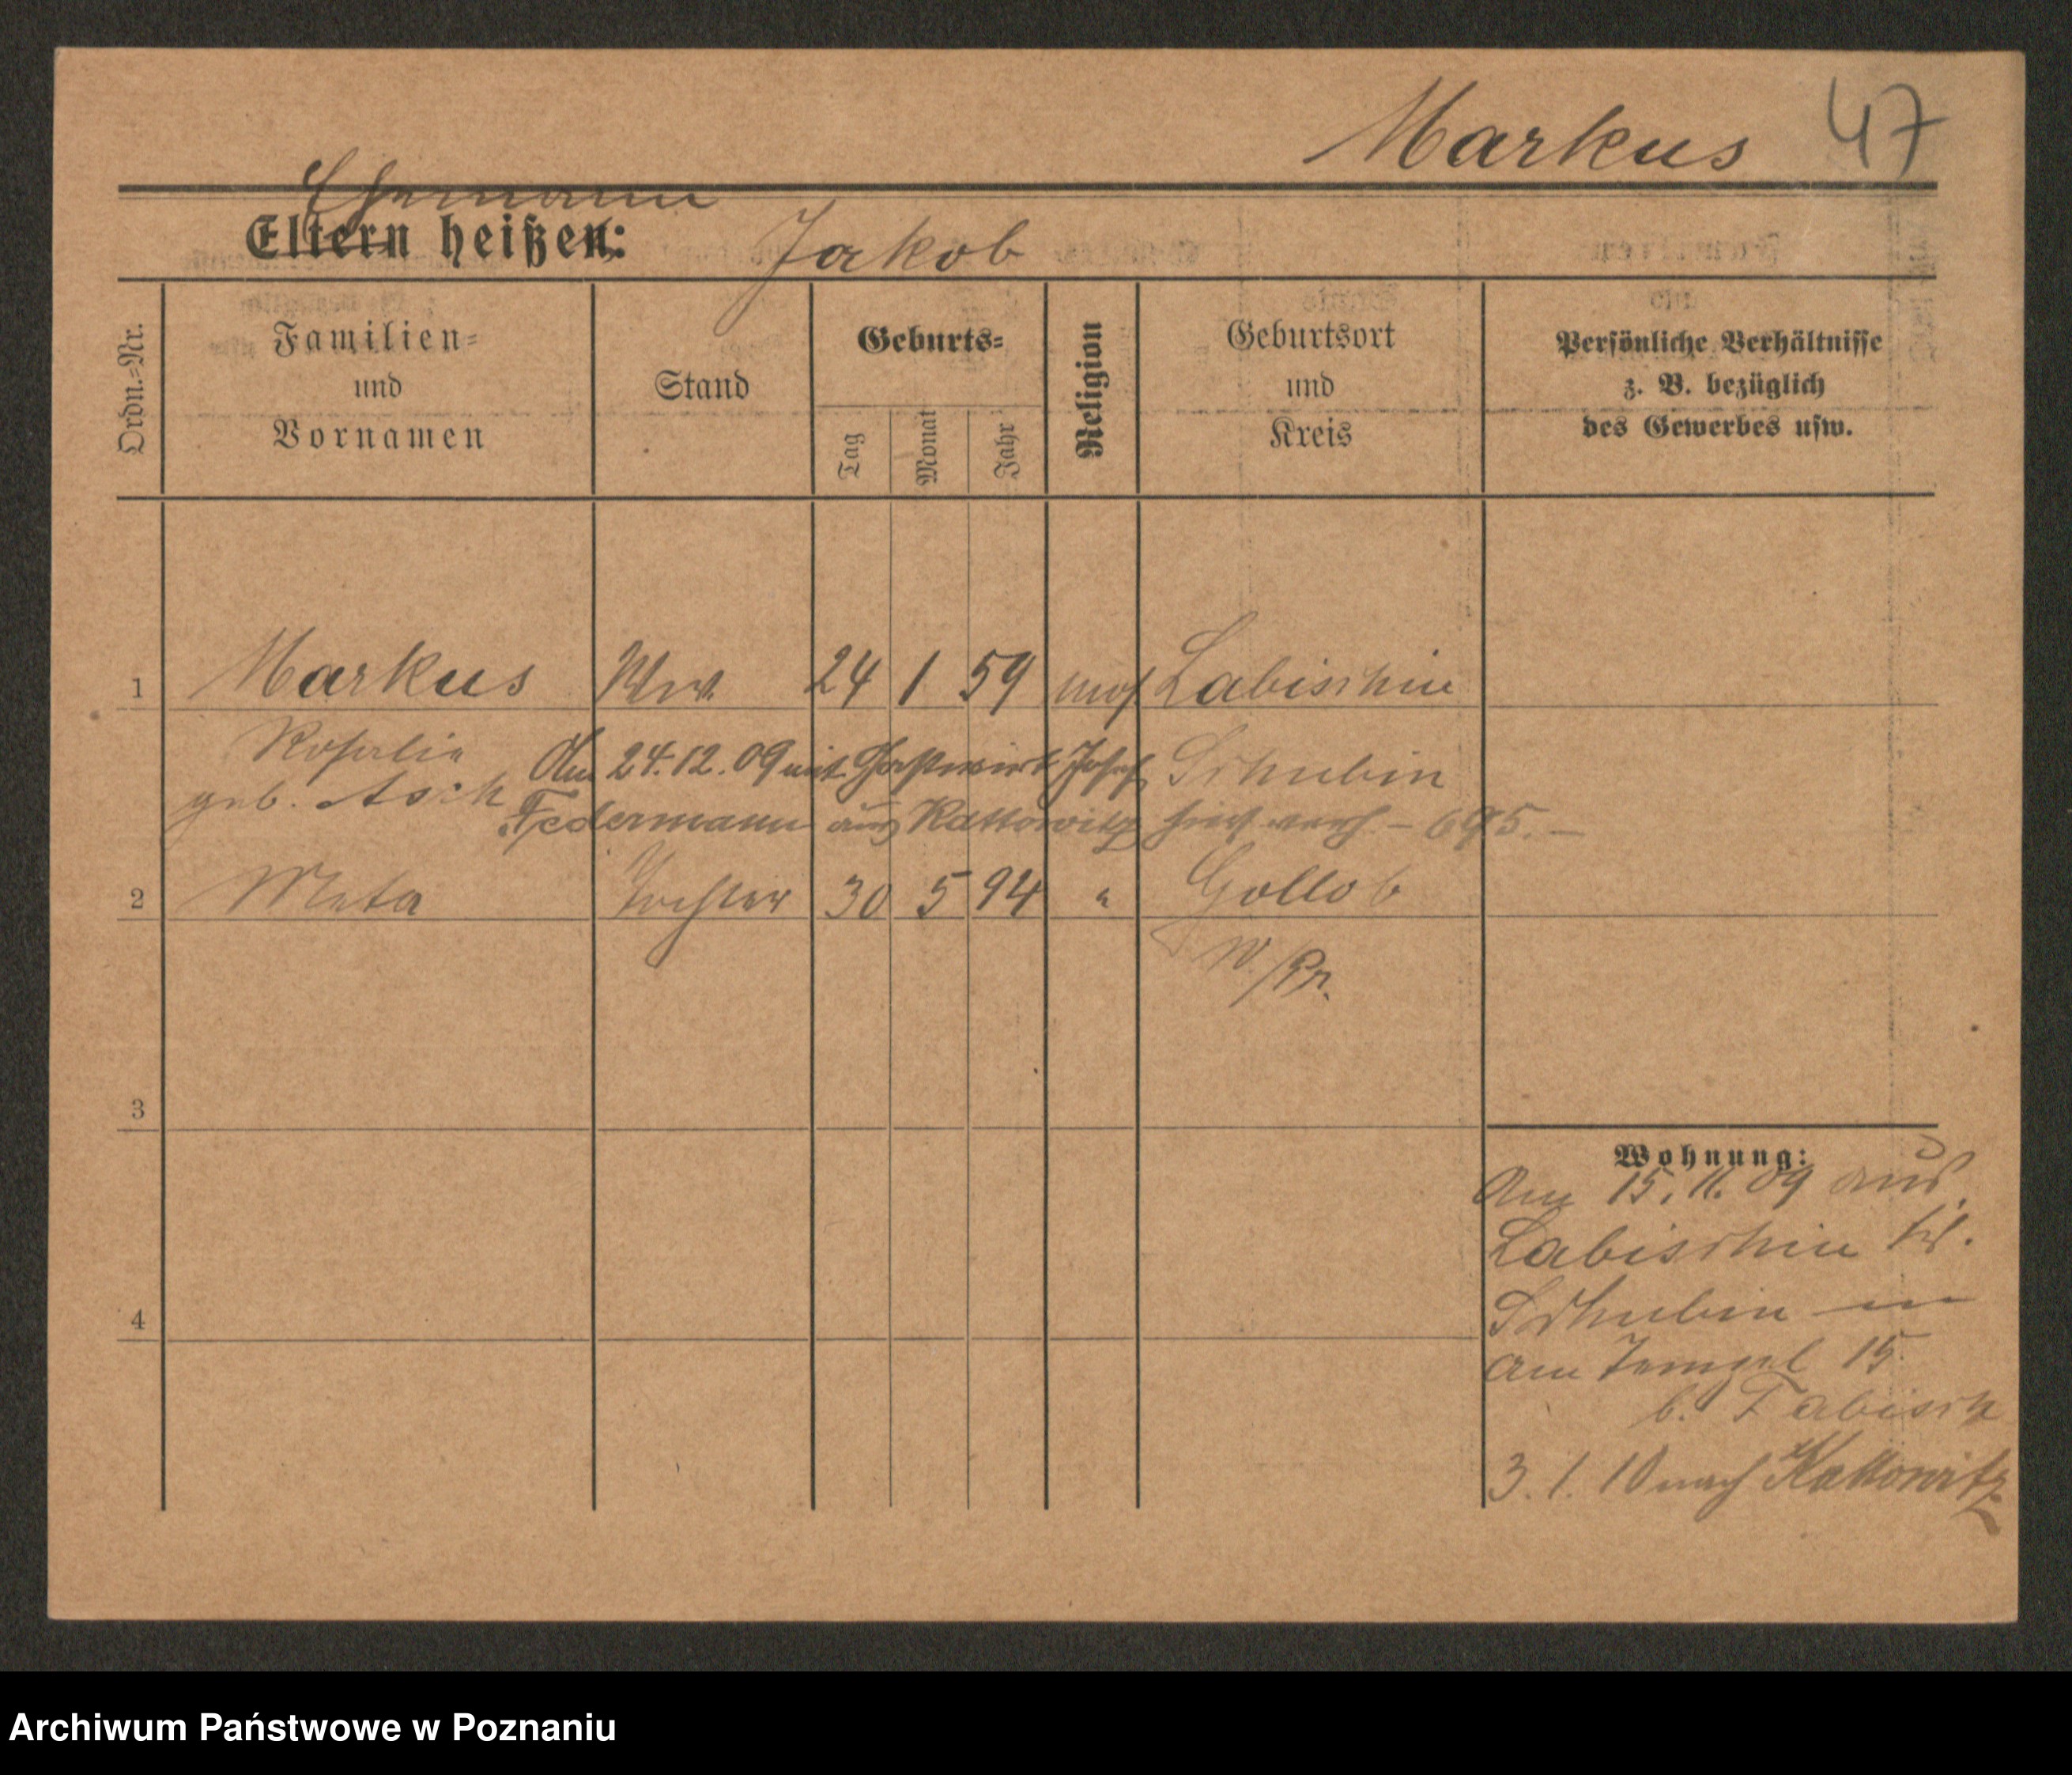 Markus 47
Ehemann
Eltern heißen: Jakob
Ordn.=Nr.
Familien=
und
Vornamen
Stand
Geburts=
Tag
Monat
Jahr
Religion
Geburtsort
und
Kreis
Persönliche Verhältnisse
z. B. bezüglich
des Gewerbes usw.
1 Markus Ww. 24 1 59 mos. Labischin
Rosalie
geb. Asch
Schubin
Am 24.12.09 mit Gastwirt Josef
Federmann aus Kattowitz hier verh. – 695. –
2 Meta Tochter 30 5 94 " Gollob
W./Pr.
3
4
Wohnung:
Am 15.11.09 aus
Labischin Kr.
Schubin
Am Tempel 15
b. Tabisch
3.1.10 nach Kattowitz
Archiwum Państwowe w Poznaniu